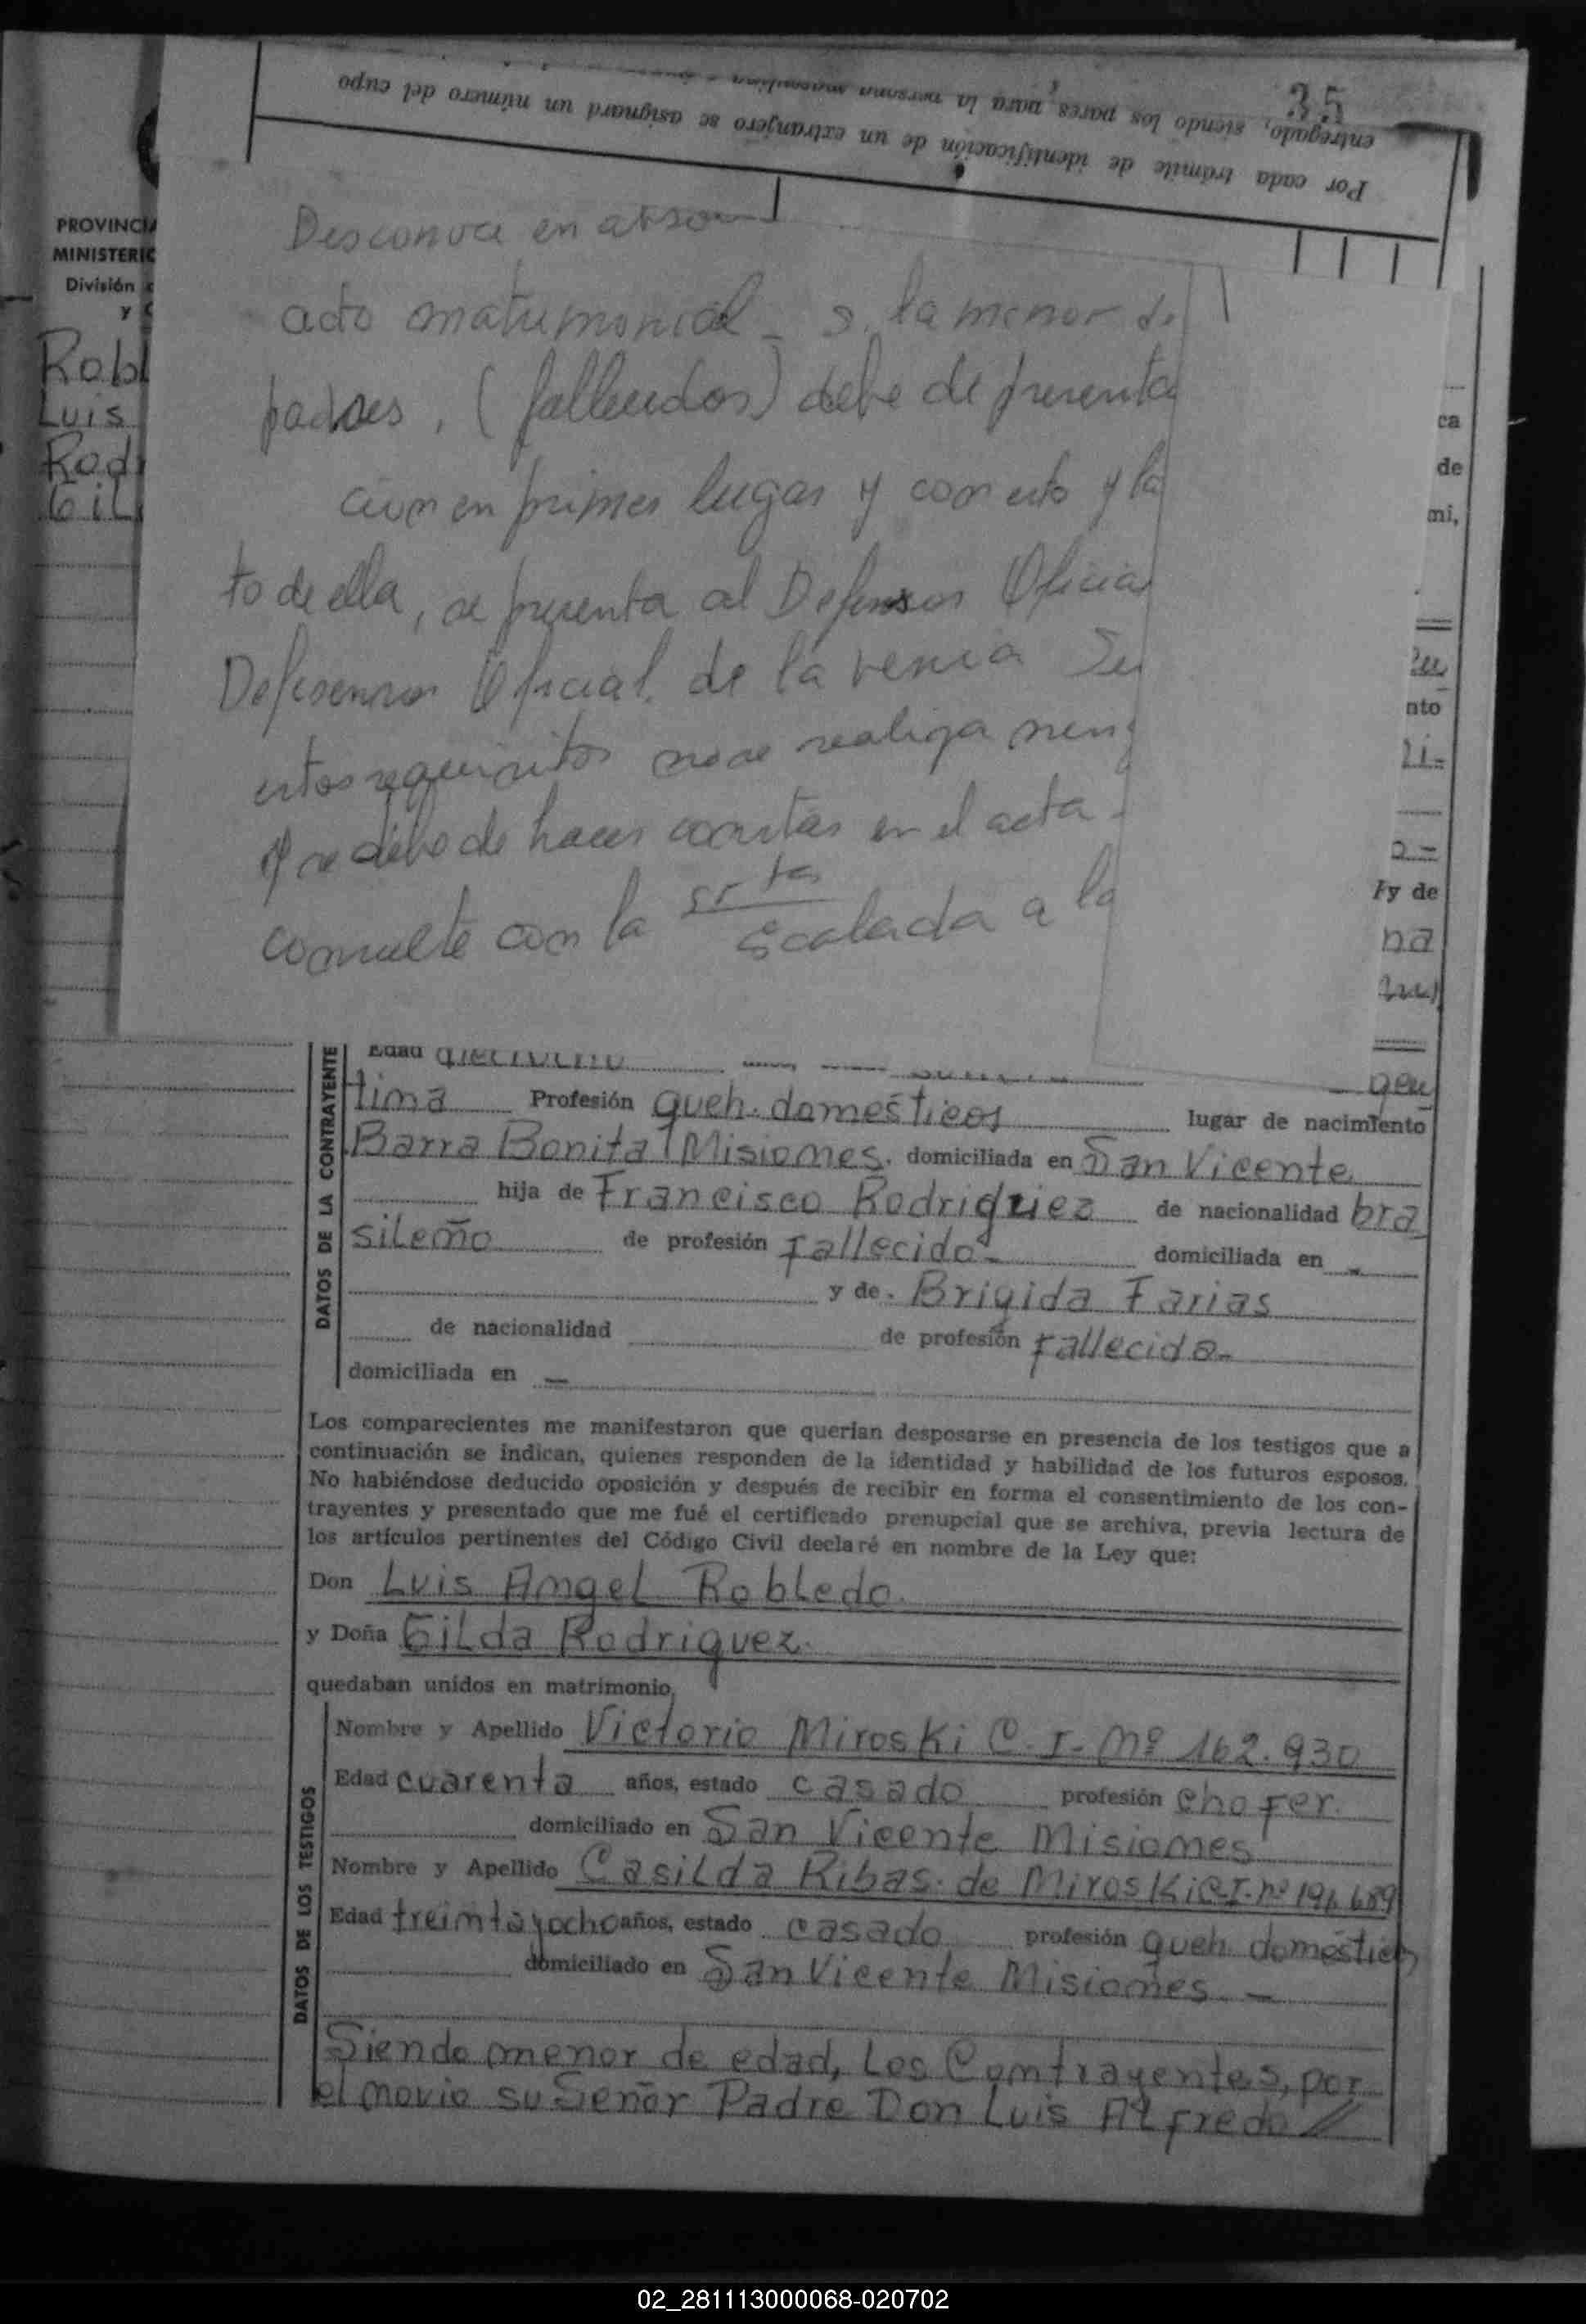 35
Por cada trámite de identificación de un extranjero se asignará un número del cupo
entregado, siendo los pares para la persona
PROVINCIA
MINISTERIO
División
y
Robl
Luis
Rodr
Gil
Desconoce en
acto matrimonial - la menor de
padres, (fallecidos) debe de presenta
cion en primer lugar y con esto y la
to de ella, se presenta al Defensor Oficial
Oficial de la venia
estos requisitos no se realiza nin
y se debe de hacer constar en el acta.
consulte con la srta
Escalada a la
ca
de
mi,
nto
li=
o=
Py de
na
Edad dieciocho
DATOS DE LA CONTRAYENTE
tima Profesión queh. domesticos lugar de nacimiento
Barra Bonita Misiones. domiciliada en San Vicente
hija de Francisco Rodriguez de nacionalidad bra
sileño de profesión fallecido- domiciliada en -
y de Brigida Farias
de nacionalidad de profesión fallecida-
domiciliada en -
Los comparecientes me manifestaron que querían desposarse en presencia de los testigos que a
continuación se indican, quienes responden de la identidad y habilidad de los futuros esposos.
No habiéndose deducido oposición y después de recibir en forma el consentimiento de los con-
trayentes y presentado que me fué el certificado prenupcial que se archiva, previa lectura de
los artículos pertinentes del Código Civil declaré en nombre de la Ley que:
Don Luis Angel Robledo.
y Doña Gilda Rodriguez.
quedaban unidos en matrimonio.
DATOS DE LOS TESTIGOS
Nombre y Apellido Victorio Miroski C.I- Nº 162.930
Edad cuarenta años, estado casado profesión chofer.
domiciliado en San Vicente Misiones
Nombre y Apellido Casilda Ribas. de Miroski C.I. nº 191.689
Edad treintayocho años, estado casado profesión queh domestico
domiciliado en San Vicente Misiones. -
Siendo menor de edad, Los Contrayentes, por
el novio su Señor Padre Don Luis Alfredo
02_281113000068-020702